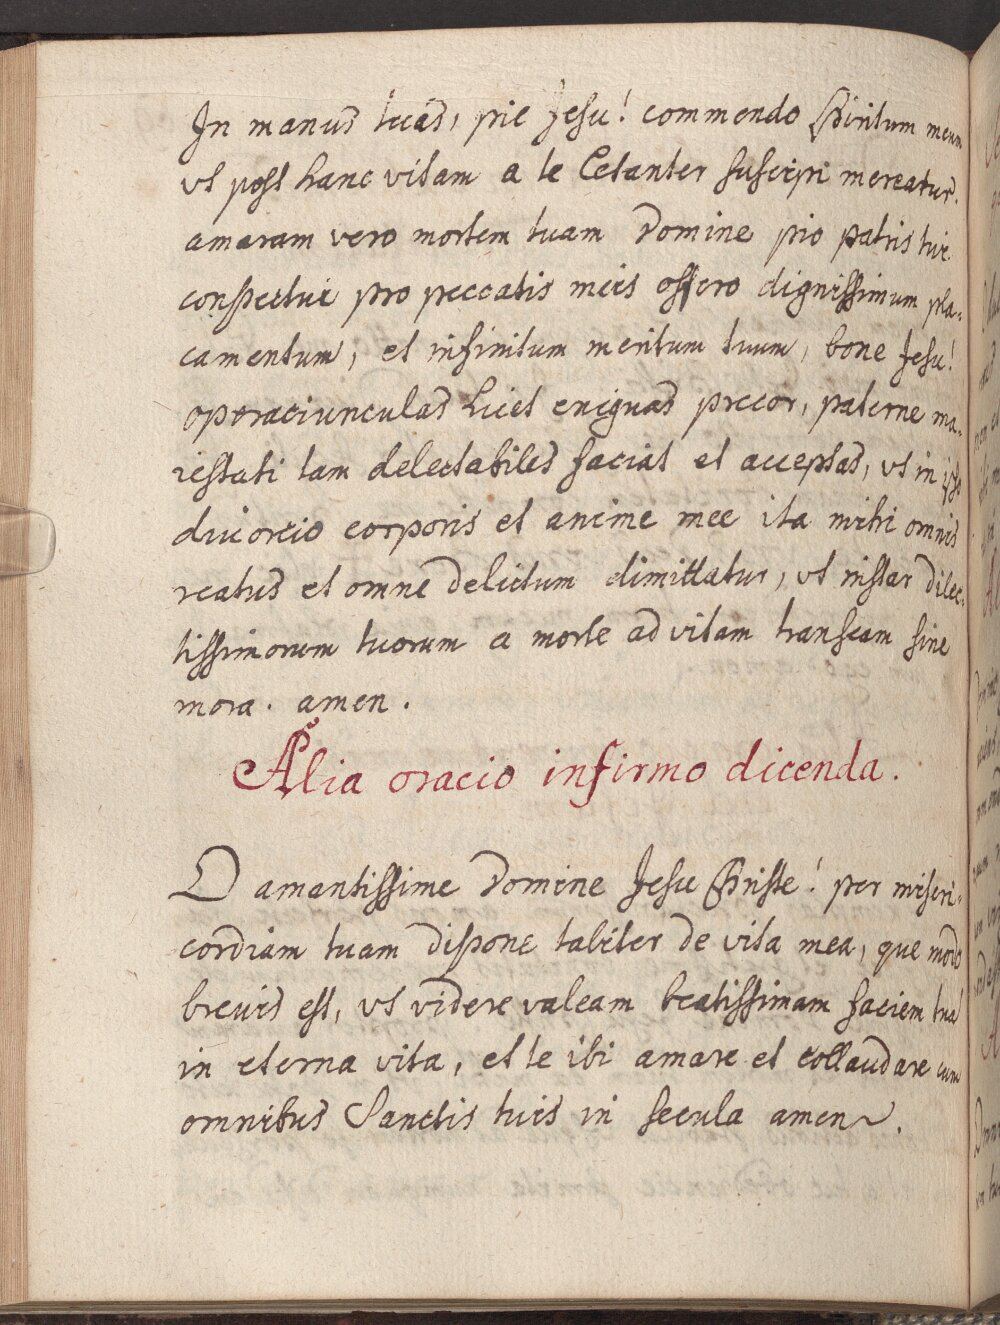 In manus tuas, pie Jesu! commendo Spiritum meum
ut post hanc vitam a te letanter suscipi mereatur.
amaram vero mortem tuam Domine pio patris tui
conspectui pro peccatis meis offero dignissimum pla-
camentum, et infinitum meritum tuum, bone Jesu!
operaciunculas licet exiguas precor, paterne ma-
iestati tam delectabiles faciat et acceptas, ut in ipso
divorcio corporis et anime mee ita mihi omnis
reatus et omne delictum dimittatur, ut instar dilec-
tissimorum tuorum a morte ad vitam transeam sine
mora. amen.
Alia oracio infirmo dicenda.
O amantissime Domine Jesu Christe! per miseri-
cordiam tuam dispone taliter de vita mea, que modo
brevis est, ut videre valeam beatissimam faciem tua
in eterna vita, et te ibi amare et collaudare cum
omnibus Sanctis tuis in secula amen.